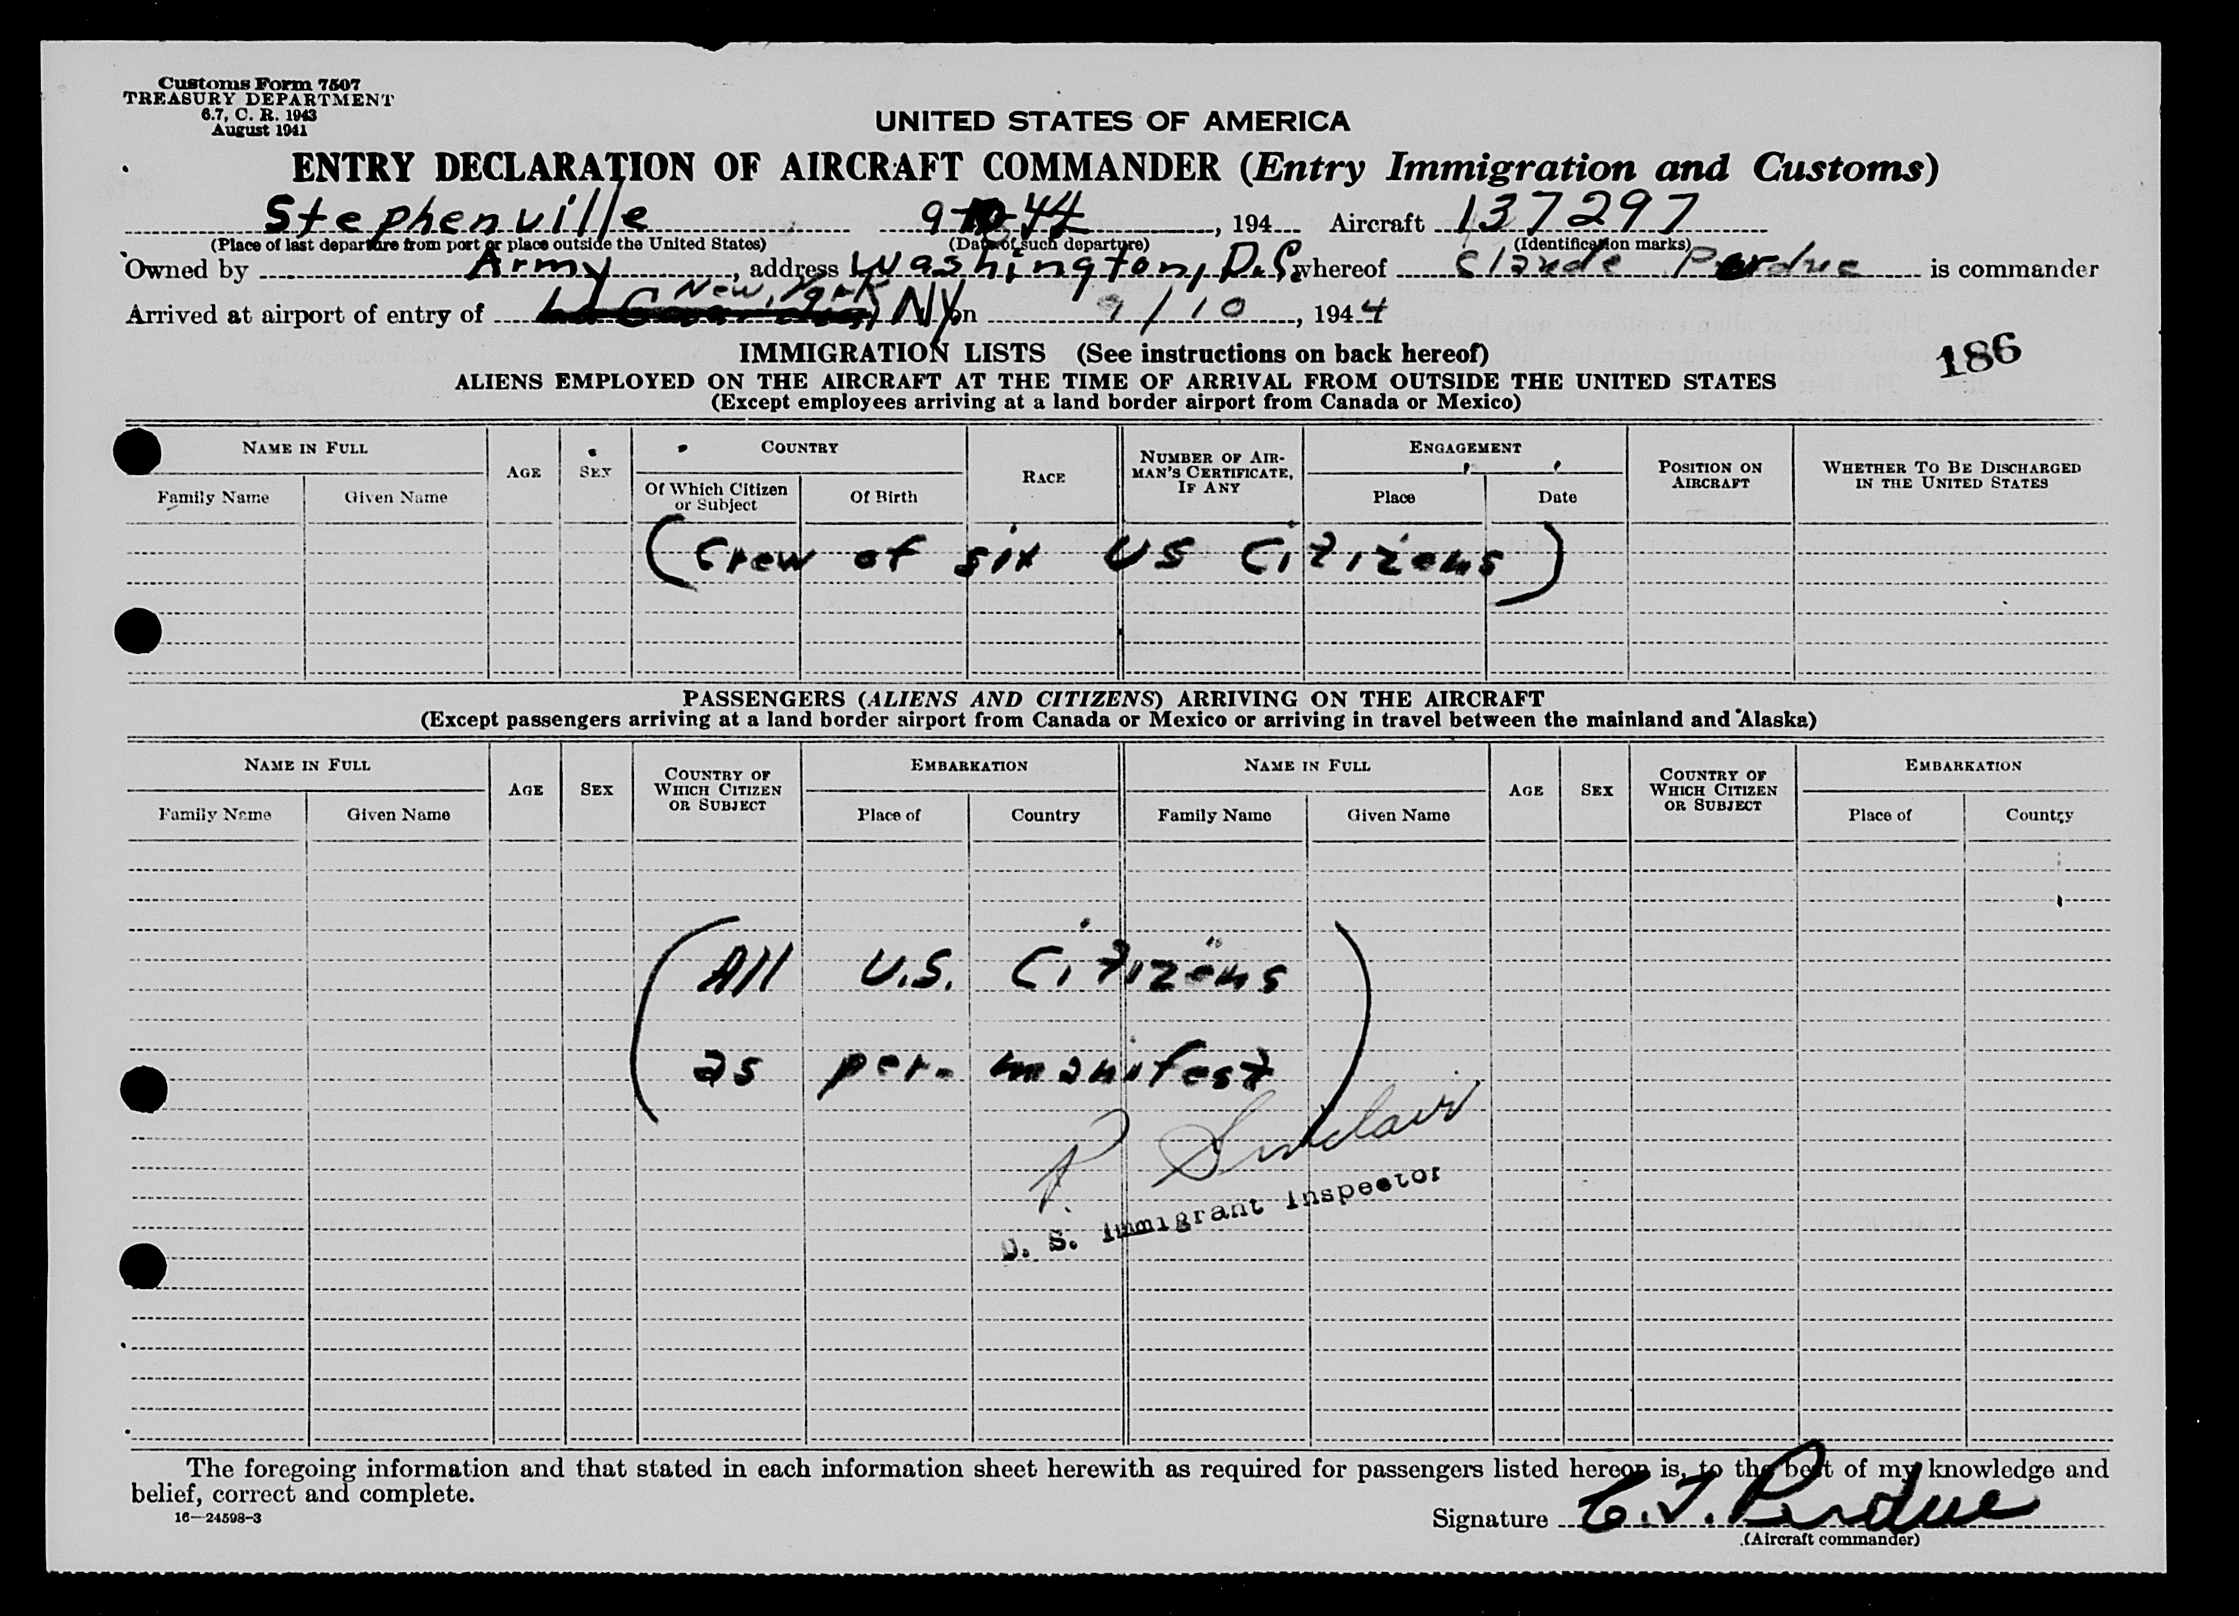 Customs Form 7507
TREASURY DEPARTMENT
6.7, C. R. 1943
August 1941
UNITED STATES OF AMERICA
ENTRY DECLARATION OF AIRCRAFT COMMANDER (Entry Immigration and Customs)
Stephenville 9-10-44, 194 Aircraft 137297
(Place of last departure from port or place outside the United States) (Date of such departure) (Identification marks)
Owned by Army, address Washington, D.C. whereof Claude Perdue is commander
New York
Arrived at airport of entry of NY on 9/10, 1944
186
IMMIGRATION LISTS (See instructions on back hereof)
ALIENS EMPLOYED ON THE AIRCRAFT AT THE TIME OF ARRIVAL FROM OUTSIDE THE UNITED STATES
(Except employees arriving at a land border airport from Canada or Mexico)
NAME IN FULL AGE SEX COUNTRY RACE NUMBER OF AIRMAN'S CERTIFICATE, IF ANY ENGAGEMENT POSITION ON AIRCRAFT WHETHER TO BE DISCHARGED IN THE UNITED STATES
Family Name Given Name Of Which Citizen or Subject Of Birth Place Date
(Crew of six US Citizens)
PASSENGERS (ALIENS AND CITIZENS) ARRIVING ON THE AIRCRAFT
(Except passengers arriving at a land border airport from Canada or Mexico or arriving in travel between the mainland and Alaska)
NAME IN FULL AGE SEX COUNTRY OF WHICH CITIZEN OR SUBJECT EMBARKATION NAME IN FULL AGE SEX COUNTRY OF WHICH CITIZEN OR SUBJECT EMBARKATION
Family Name Given Name Place of Country Family Name Given Name Place of Country
(All U.S. Citizens
as per manifest)
P. Sinclair
U. S. Immigrant Inspector
The foregoing information and that stated in each information sheet herewith as required for passengers listed hereon is, to the best of my knowledge and
belief, correct and complete.
16—24598-3
Signature C. T. Perdue
(Aircraft commander)